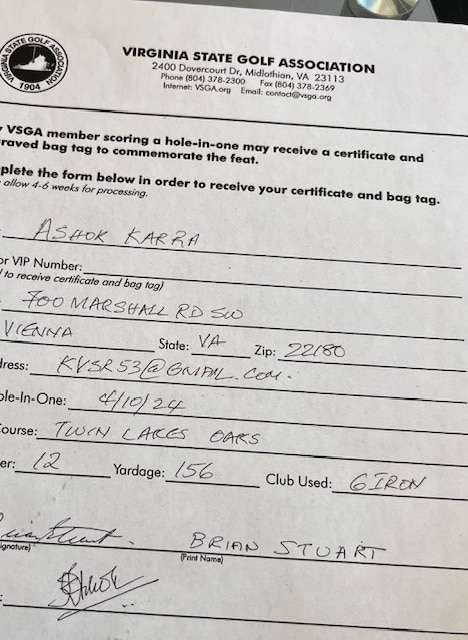 VIRGINIA STATE GOLF ASSOCIATION
1904
VIRGINIA STATE GOLF ASSOCIATION
2400 Dovercourt Dr, Midlothian, VA 23113
Phone (804) 378-2300 Fax (804) 378-2369
Internet: VSGA.org Email: contact@vsga.org
VSGA member scoring a hole-in-one may receive a certificate and
raved bag tag to commemorate the feat.
plete the form below in order to receive your certificate and bag tag.
allow 4-6 weeks for processing.
ASHOK KARRA
or VIP Number:
to receive certificate and bag tag)
700 MARSHALL RD SW
VIENNA State: VA Zip: 22180
dress: KVSR53@GMAIL.COM.
ole-In-One: 4/10/24
ourse: TWIN LAKES OAKS
er: 12 Yardage: 156 Club Used: 6 IRON
BRIAN STUART
ignature) (Print Name)